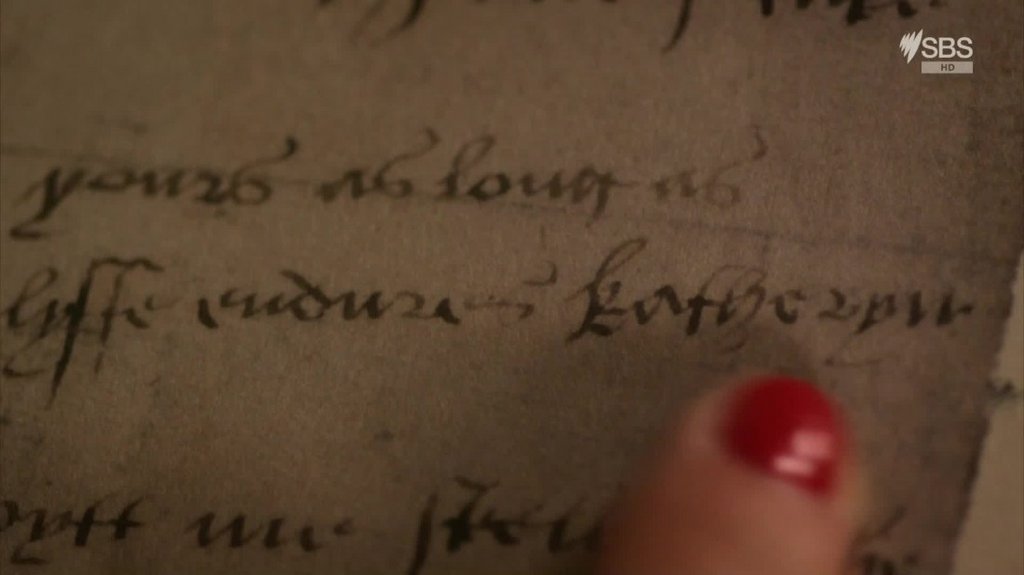 SBS
HD
yours as long as
lyffe endures katheryn
me